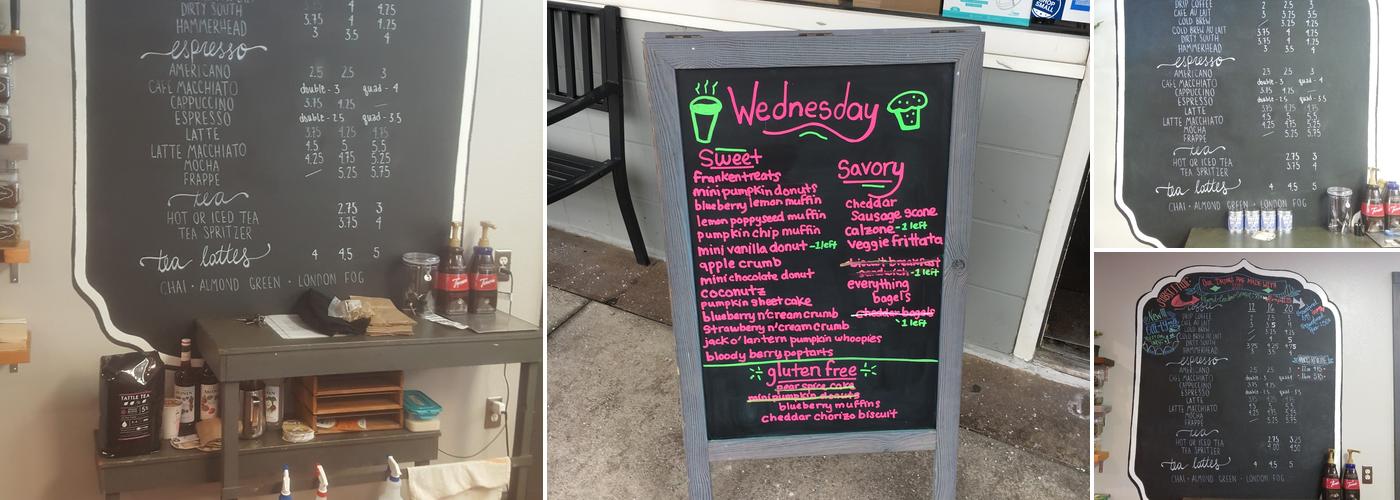 DIRTY SOUTH 3.75 4 4.25
HAMMERHEAD 3 3.5 4
espresso
AMERICANO 2.5 2.5 3
CAFE MACCHIATO double - 3 quad - 4
CAPPUCCINO 3.75 4.25 —
ESPRESSO double - 2.5 quad - 3.5
LATTE 3.75 4.25 4.75
LATTE MACCHIATO 4.5 5 5.5
MOCHA 4.25 4.75 5.25
FRAPPE — 5.25 5.75
tea
HOT OR ICED TEA 2.75 3
TEA SPRITZER 3.75 4
tea lattes 4 4.5 5
CHAI · ALMOND GREEN · LONDON FOG
TATTLE TEA
Torani
Torani
SHOP
SMALL
Wednesday
Sweet
frankentreats
mini pumpkin donuts
blueberry lemon muffin
lemon poppyseed muffin
pumpkin chip muffin
mini vanilla donut -1 left
apple crumb
mini chocolate donut
coconutz
pumpkin sheet cake
blueberry n'cream crumb
strawberry n'cream crumb
jack o'lantern pumpkin whoopies
bloody berry poptarts
Savory
cheddar
sausage scone
calzone -1 left
veggie frittata
biscuit breakfast
sandwich -1 left
everything
bagels
cheddar bagels
1 left
gluten free
pear spice cake
mini pumpkin donuts
blueberry muffins
cheddar chorizo biscuit
DRIP COFFEE 2 2.5 3
CAFE AU LAIT
COLD BREW
COLD BREW AU LAIT
DIRTY SOUTH 3.75 4 4.25
HAMMERHEAD 3 3.5 4
espresso
AMERICANO 2.5 2.5 3
CAFE MACCHIATO double - 3 quad - 4
CAPPUCCINO 3.75 4.25 —
ESPRESSO double - 2.5 quad - 3.5
LATTE 3.75 4.25 4.75
LATTE MACCHIATO 4.5 5 5.5
MOCHA 4.25 4.75 5.25
FRAPPE — 5.25 5.75
tea
HOT OR ICED TEA 2.75 3
TEA SPRITZER 3.75 4
tea lattes 4 4.5 5
CHAI · ALMOND GREEN · LONDON FOG
12 16 20
CAFE AU LAIT
COLD BREW
COLD BREW AU LAIT
DIRTY SOUTH
HAMMERHEAD
espresso
AMERICANO
CAFE MACCHIATO
CAPPUCCINO
ESPRESSO
LATTE
LATTE MACCHIATO
MOCHA
FRAPPE
tea
HOT OR ICED TEA 2.75 3.25
TEA SPRITZER 4.00 4.50
tea lattes 4 4.5 5
CHAI · ALMOND GREEN · LONDON FOG